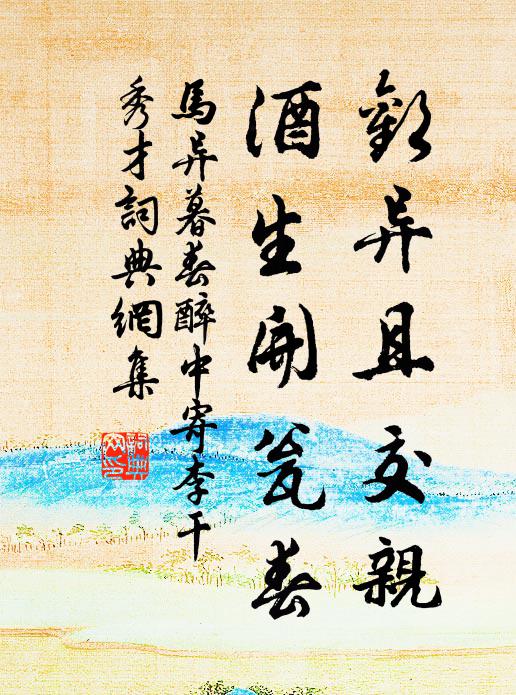 歡异且交親
酒生開瓮春
馬异暮春醉中寄李干
秀才詞典網集